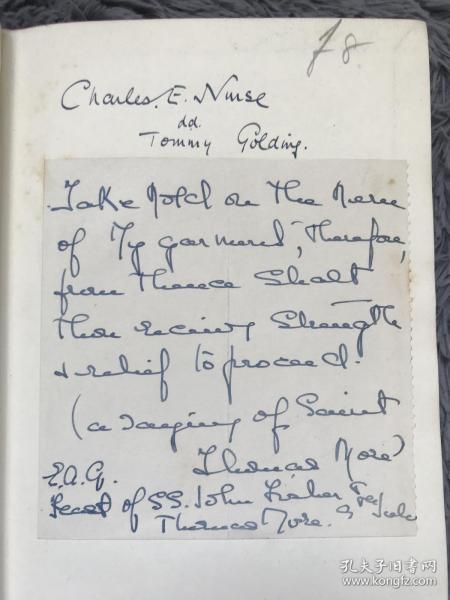 78
Charles. E. Nurse
dd.
Tommy Golding.
Take hold on the
of My garment, therefore,
from thence shalt
thou receive strength
& relief to proceed.
(a saying of Saint
Thomas More)
E.A.G.
Feast of SS. John Fisher
Thomas More. 9 July
孔夫子旧书网
www.kongfz.com